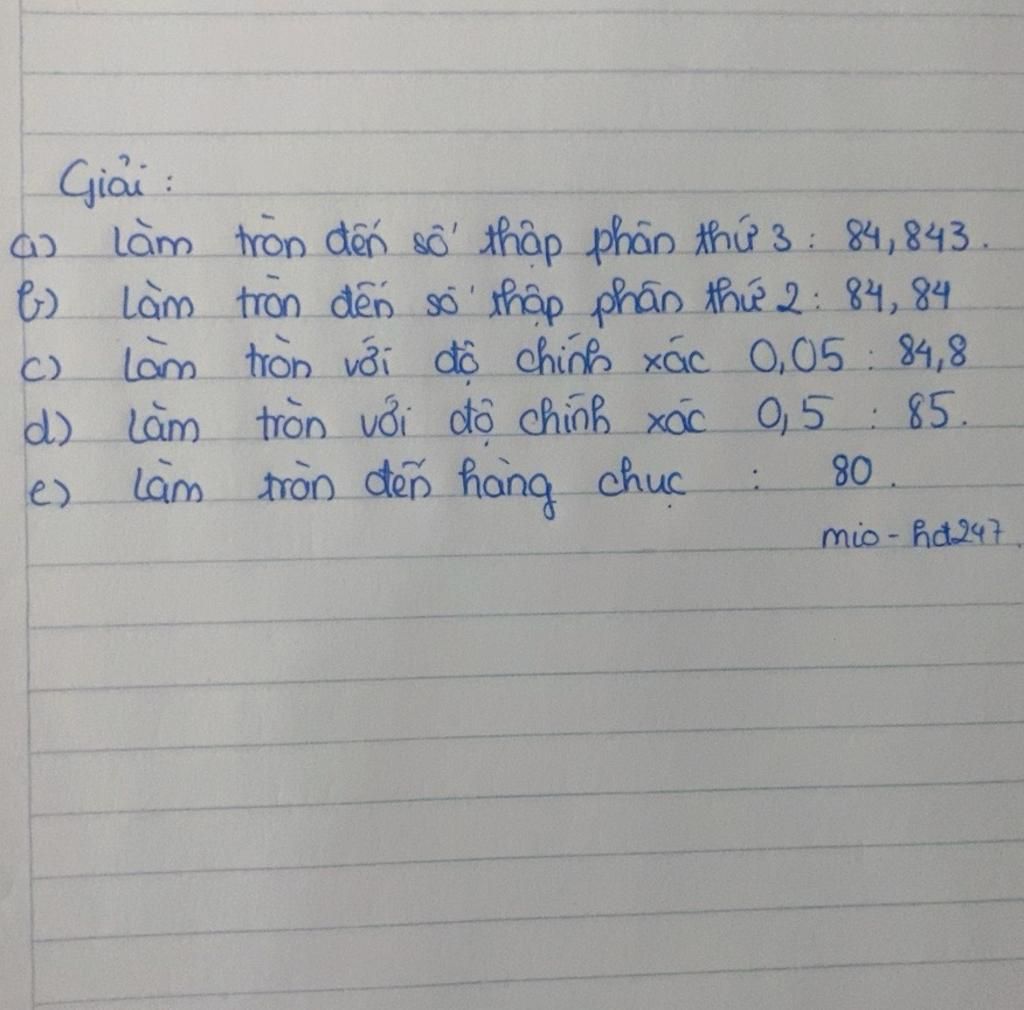 Giải :
a) Làm tròn đến số thập phân thứ 3 : 84,843.
b) Làm tròn đến số thập phân thứ 2 : 84,84
c) Làm tròn với độ chính xác 0,05 : 84,8
d) Làm tròn với độ chính xác 0,5 : 85.
e) Làm tròn đến hàng chục : 80.
mio - hd247.